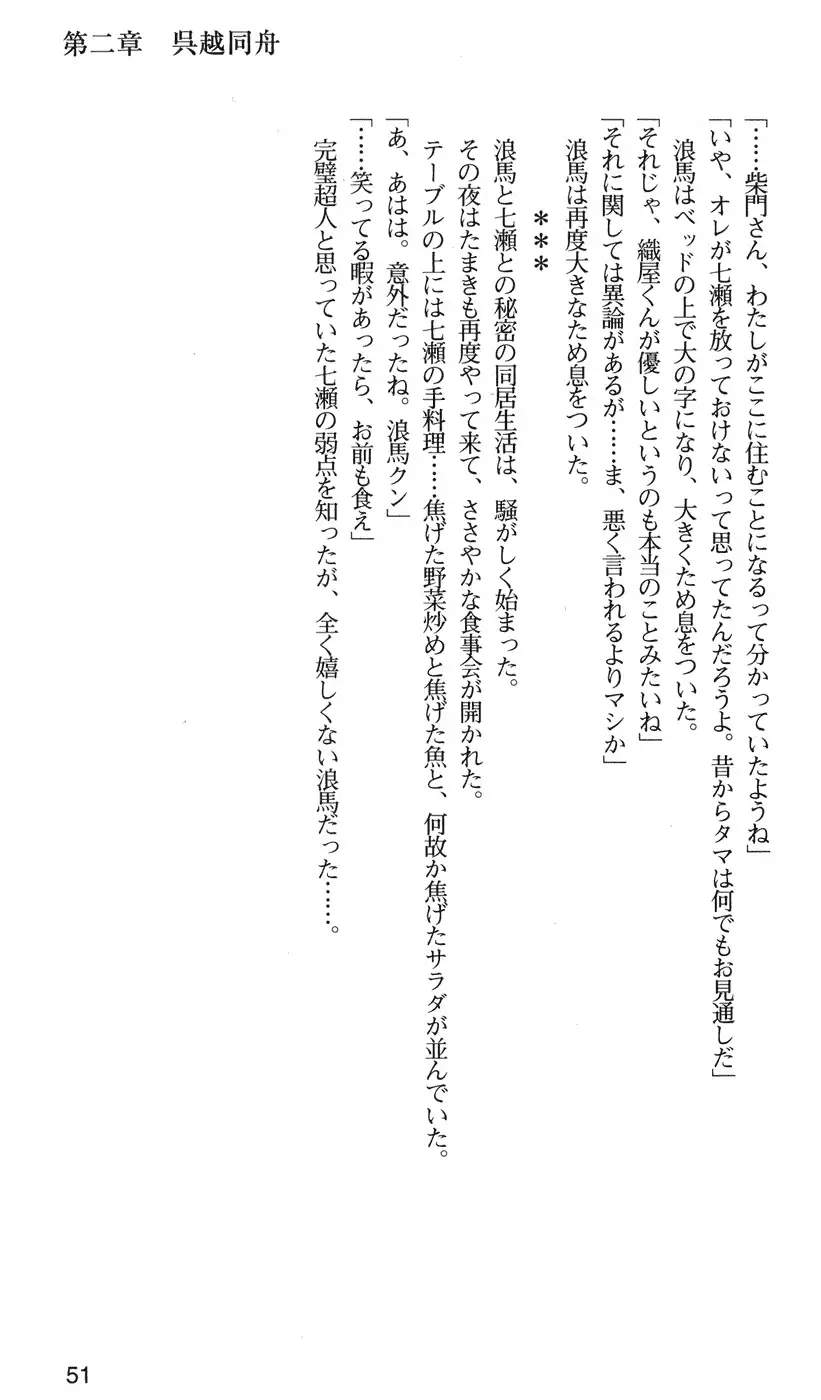 第二章　呉越同舟
「……柴門さん、わたしがここに住むことになるって分かっていたようね」
「いや、オレが七瀬を放っておけないって思ってたんだろうよ。昔からタマは何でもお見通しだ」
浪馬はベッドの上で大の字になり、大きくため息をついた。
「それじゃ、織屋くんが優しいというのも本当のことみたいね」
「それに関しては異論があるが……ま、悪く言われるよりマシか」
浪馬は再度大きなため息をついた。
＊＊＊
浪馬と七瀬との秘密の同居生活は、騒がしく始まった。
その夜はたまきも再度やって来て、ささやかな食事会が開かれた。
テーブルの上には七瀬の手料理……焦げた野菜炒めと焦げた魚と、何故か焦げたサラダが並んでいた。
「あ、あはは。意外だったね。浪馬クン」
「……笑ってる暇があったら、お前も食え」
完璧超人と思っていた七瀬の弱点を知ったが、全く嬉しくない浪馬だった……。
51